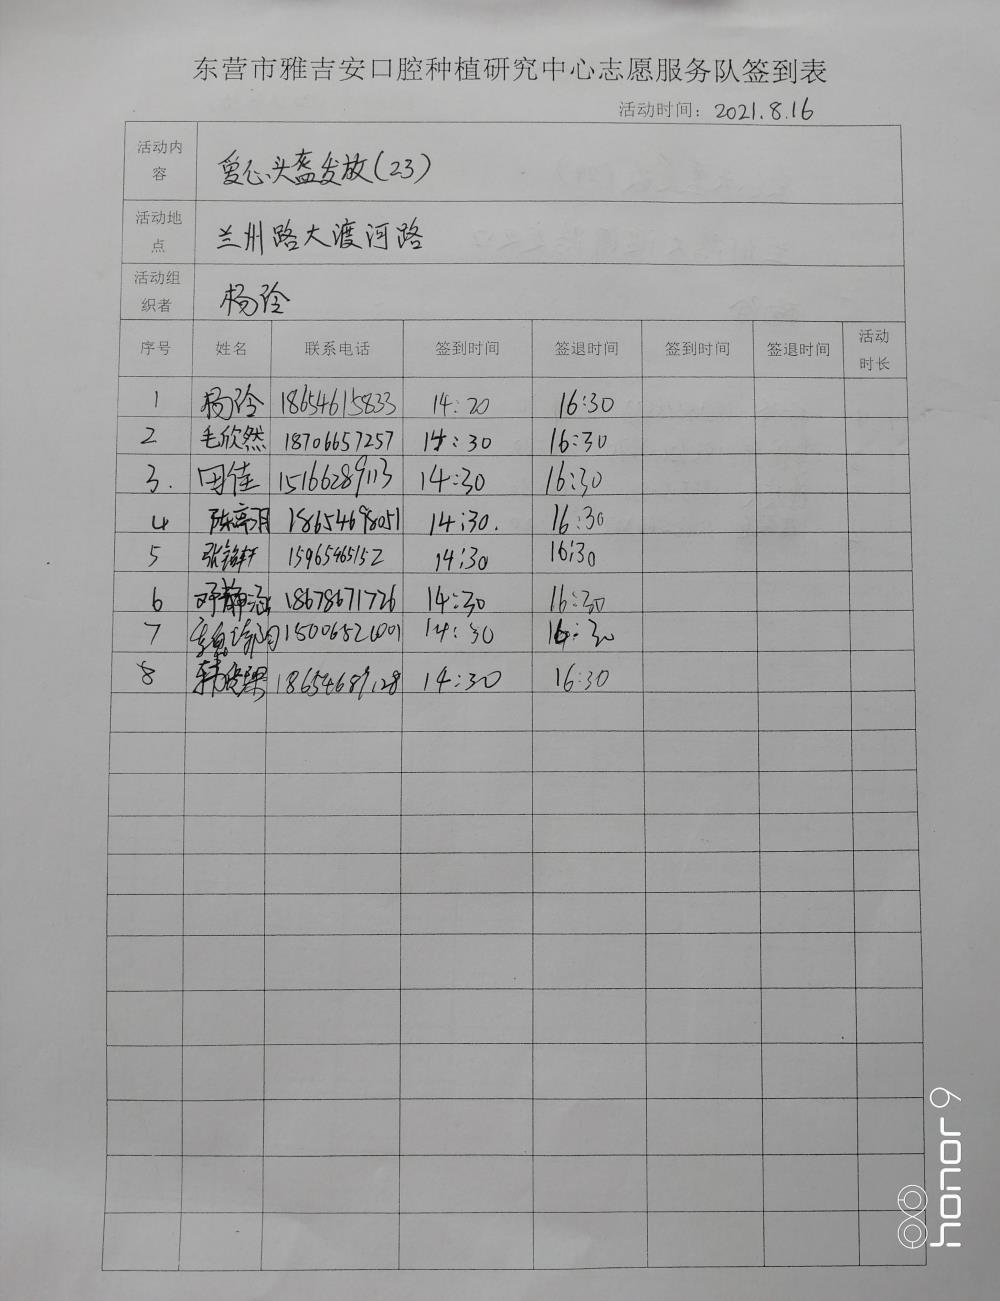 东营市雅吉安口腔种植研究中心志愿服务队签到表
活动时间：2021.8.16
活动内容 爱心头盔发放(23)
活动地点 兰州路大渡河路
活动组织者 杨玲
序号 姓名 联系电话 签到时间 签退时间 签到时间 签退时间 活动时长
1 杨玲 18654615833 14:20 16:30
2 毛欣然 18706657257 14:30 16:30
3. 田佳 15166289113 14:30 16:30
4 18654698051 14:30. 16:30
5 15965465152 14:30 16:30
6 邓静涵 18678671726 14:30 16:30
7 14:30 16:30
8 18654689128 14:30 16:30
honor 9